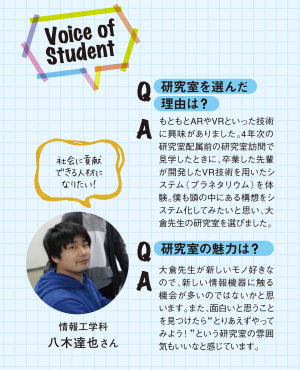 Voice of
Student
Q 研究室を選んだ
理由は?
A もともとARやVRといった技術
に興味がありました。4年次の
研究室配属前の研究室訪問で
見学したときに、卒業した先輩
が開発したVR技術を用いたシ
ステム（プラネタリウム）を体
験。僕も頭の中にある構想をシ
ステム化してみたいと思い、大
倉先生の研究室を選びました。
社会に貢献
できる人材に
なりたい!
Q 研究室の魅力は?
A 大倉先生が新しいモノ好きな
ので、新しい情報機器に触る
機会が多いのではないかと思
います。また、面白いと思うこと
を見つけたら“とりあえずやって
みよう!”という研究室の雰囲
気もいいなと感じています。
情報工学科
八木達也さん